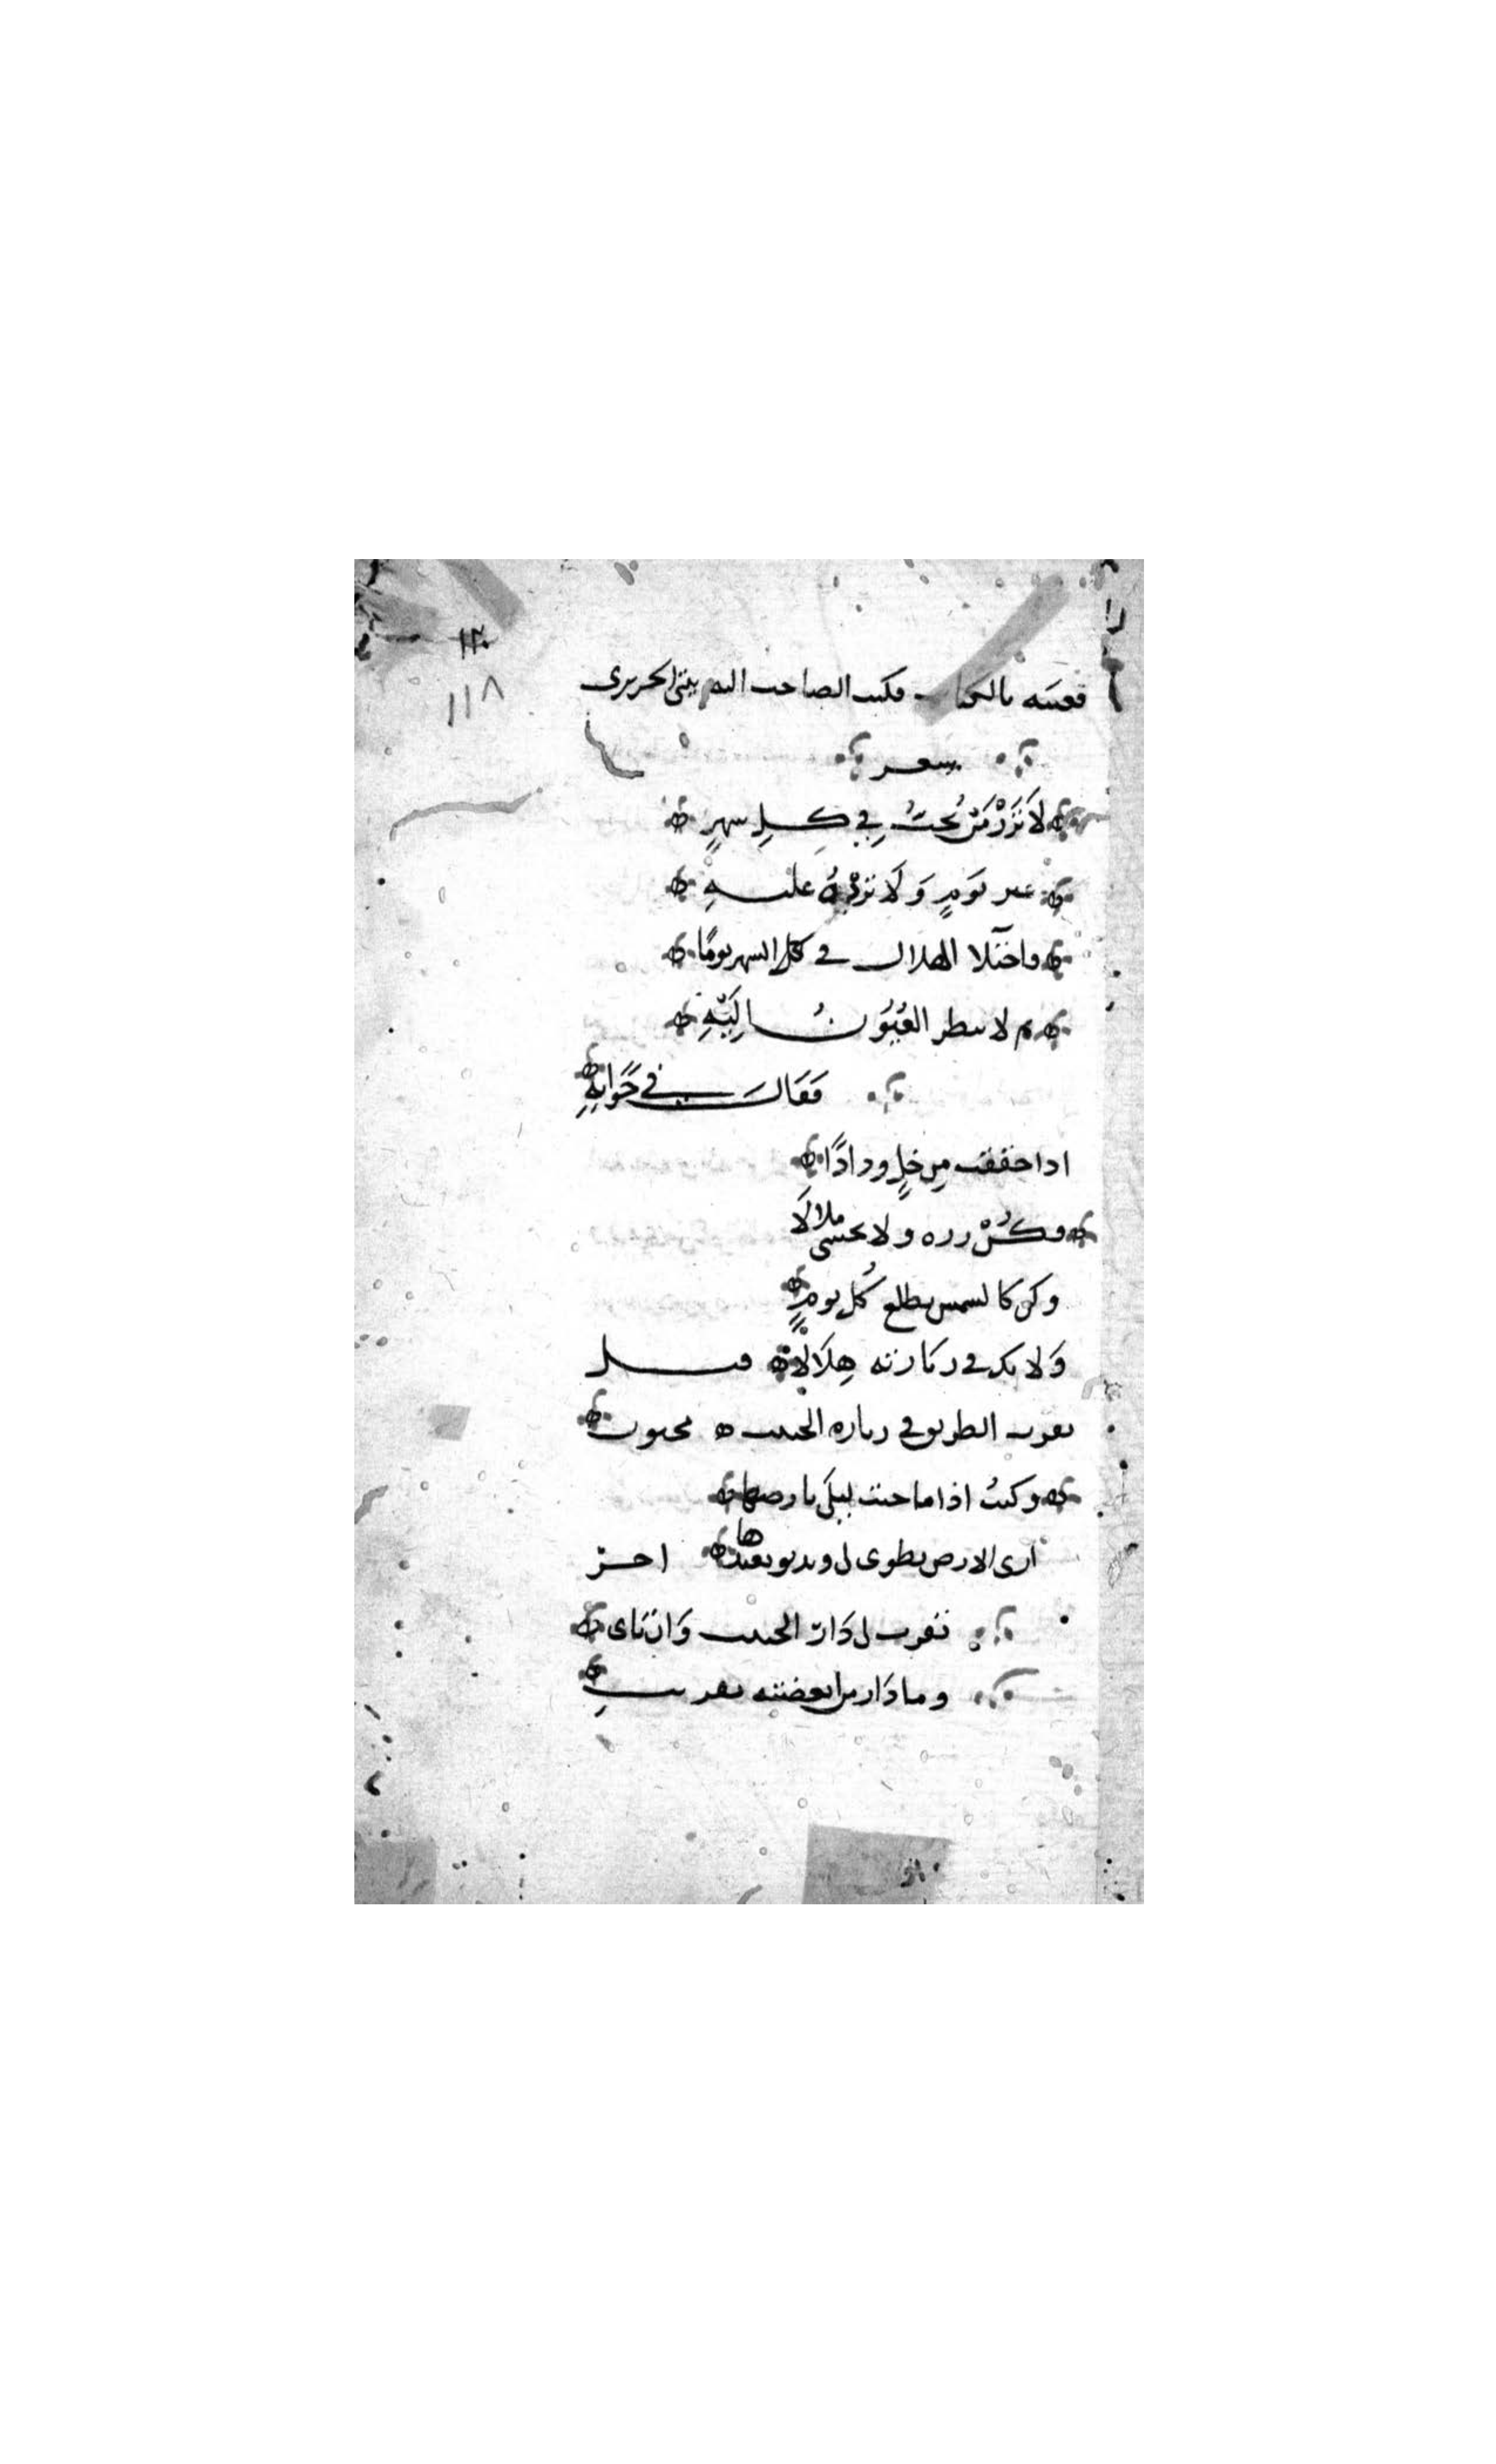 ١٢٠
١١٨
فعتبه بالكتاب فكتب الصاحب اليه بيتى الحريرى
شعر
لَا تَزُرْ مَنْ تُحِبُّ فِي كُلِ شهرٍ
غير يَومٍ وَلَا تزدْهُ عليهِ
فاجتلا الهلال فى كل الشهر يومًا
ثم لا ينظر العُيُونُ اليْهِ
فَقَالَ في جَوَابِهِ
اذا حققت مِن خلٍ ودادًا
فكُنْ زره ولا تخشى ملالَا
وكن كالشمس يطلع كُل يومٍ
وَلا تك فى زيارته هِلَالًا قيل
يقرب الطريق فى زياره الحبيب مجنون
وكنتُ اذا ما جئت ليلَى بارضها
ارى الارض يطوى لى ويدنو بعيدها اخر
تقرب لى دَارُ الحبيب وَان نَاى
وما دَار من ابغضته بقريبِ